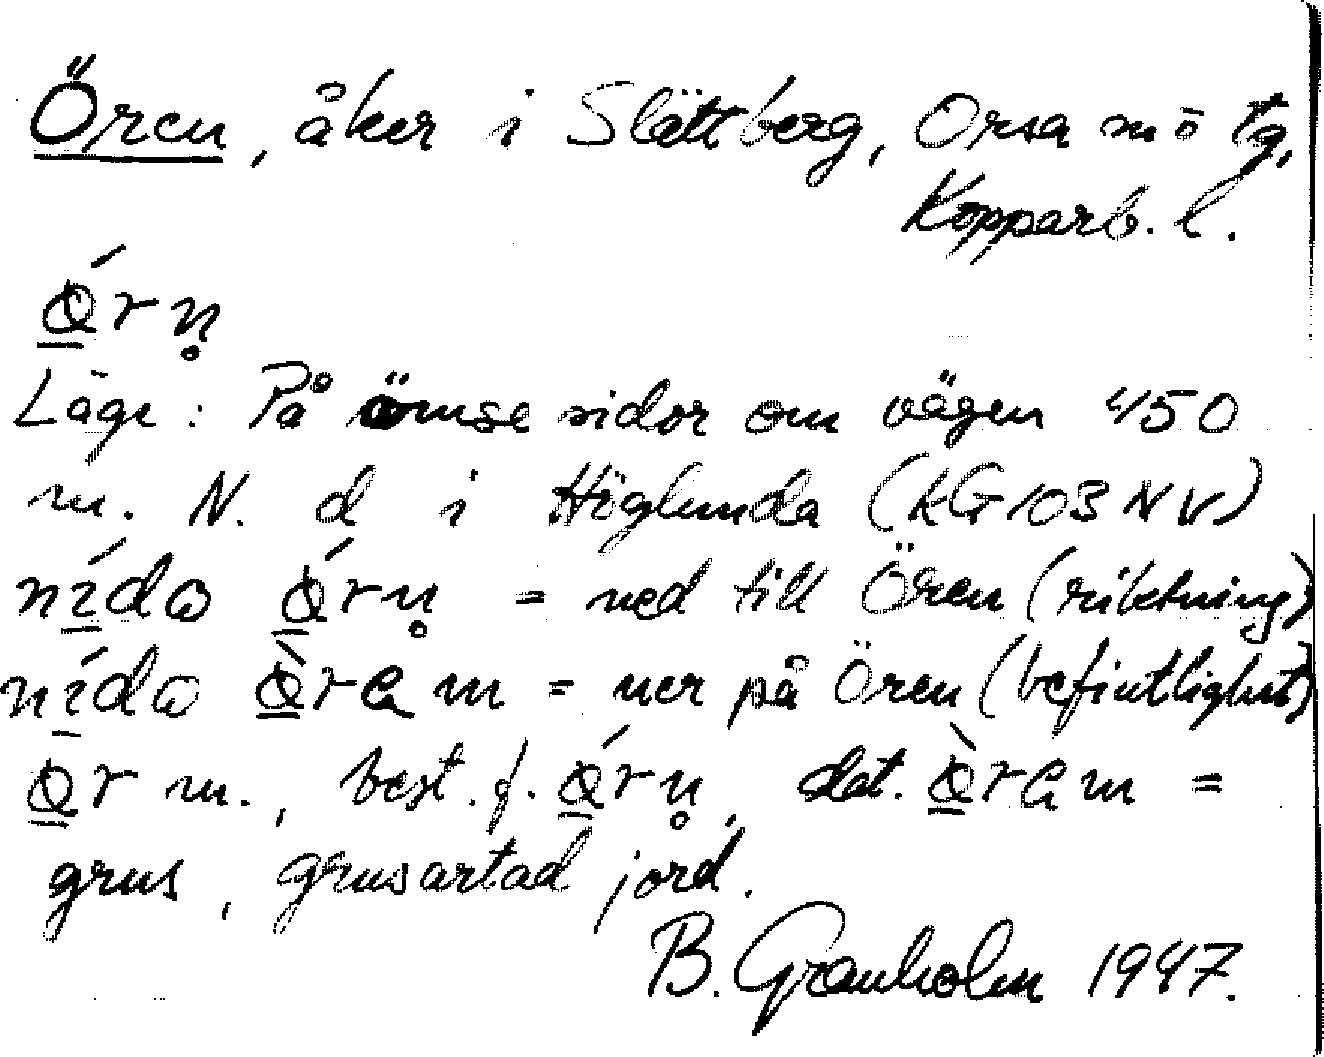 Ören, åker i Slättberg, Orsa sn ö tg,
Kopparb. l.
ǿ̱rn̥
Läge: På ömse sidor om vägen 450
m. N. d i Höglunda (KG 103 NV)
ní̱da ǿ̱rn̥ = ned till Ören (riktning)
ní̱da ø̱̀ram = ner på Ören (befintlighet)
ø̱r m., best. f. ǿ̱rn̥, dat. ø̱̀ram =
grus, grusartad jord.
B. Granholm 1947.